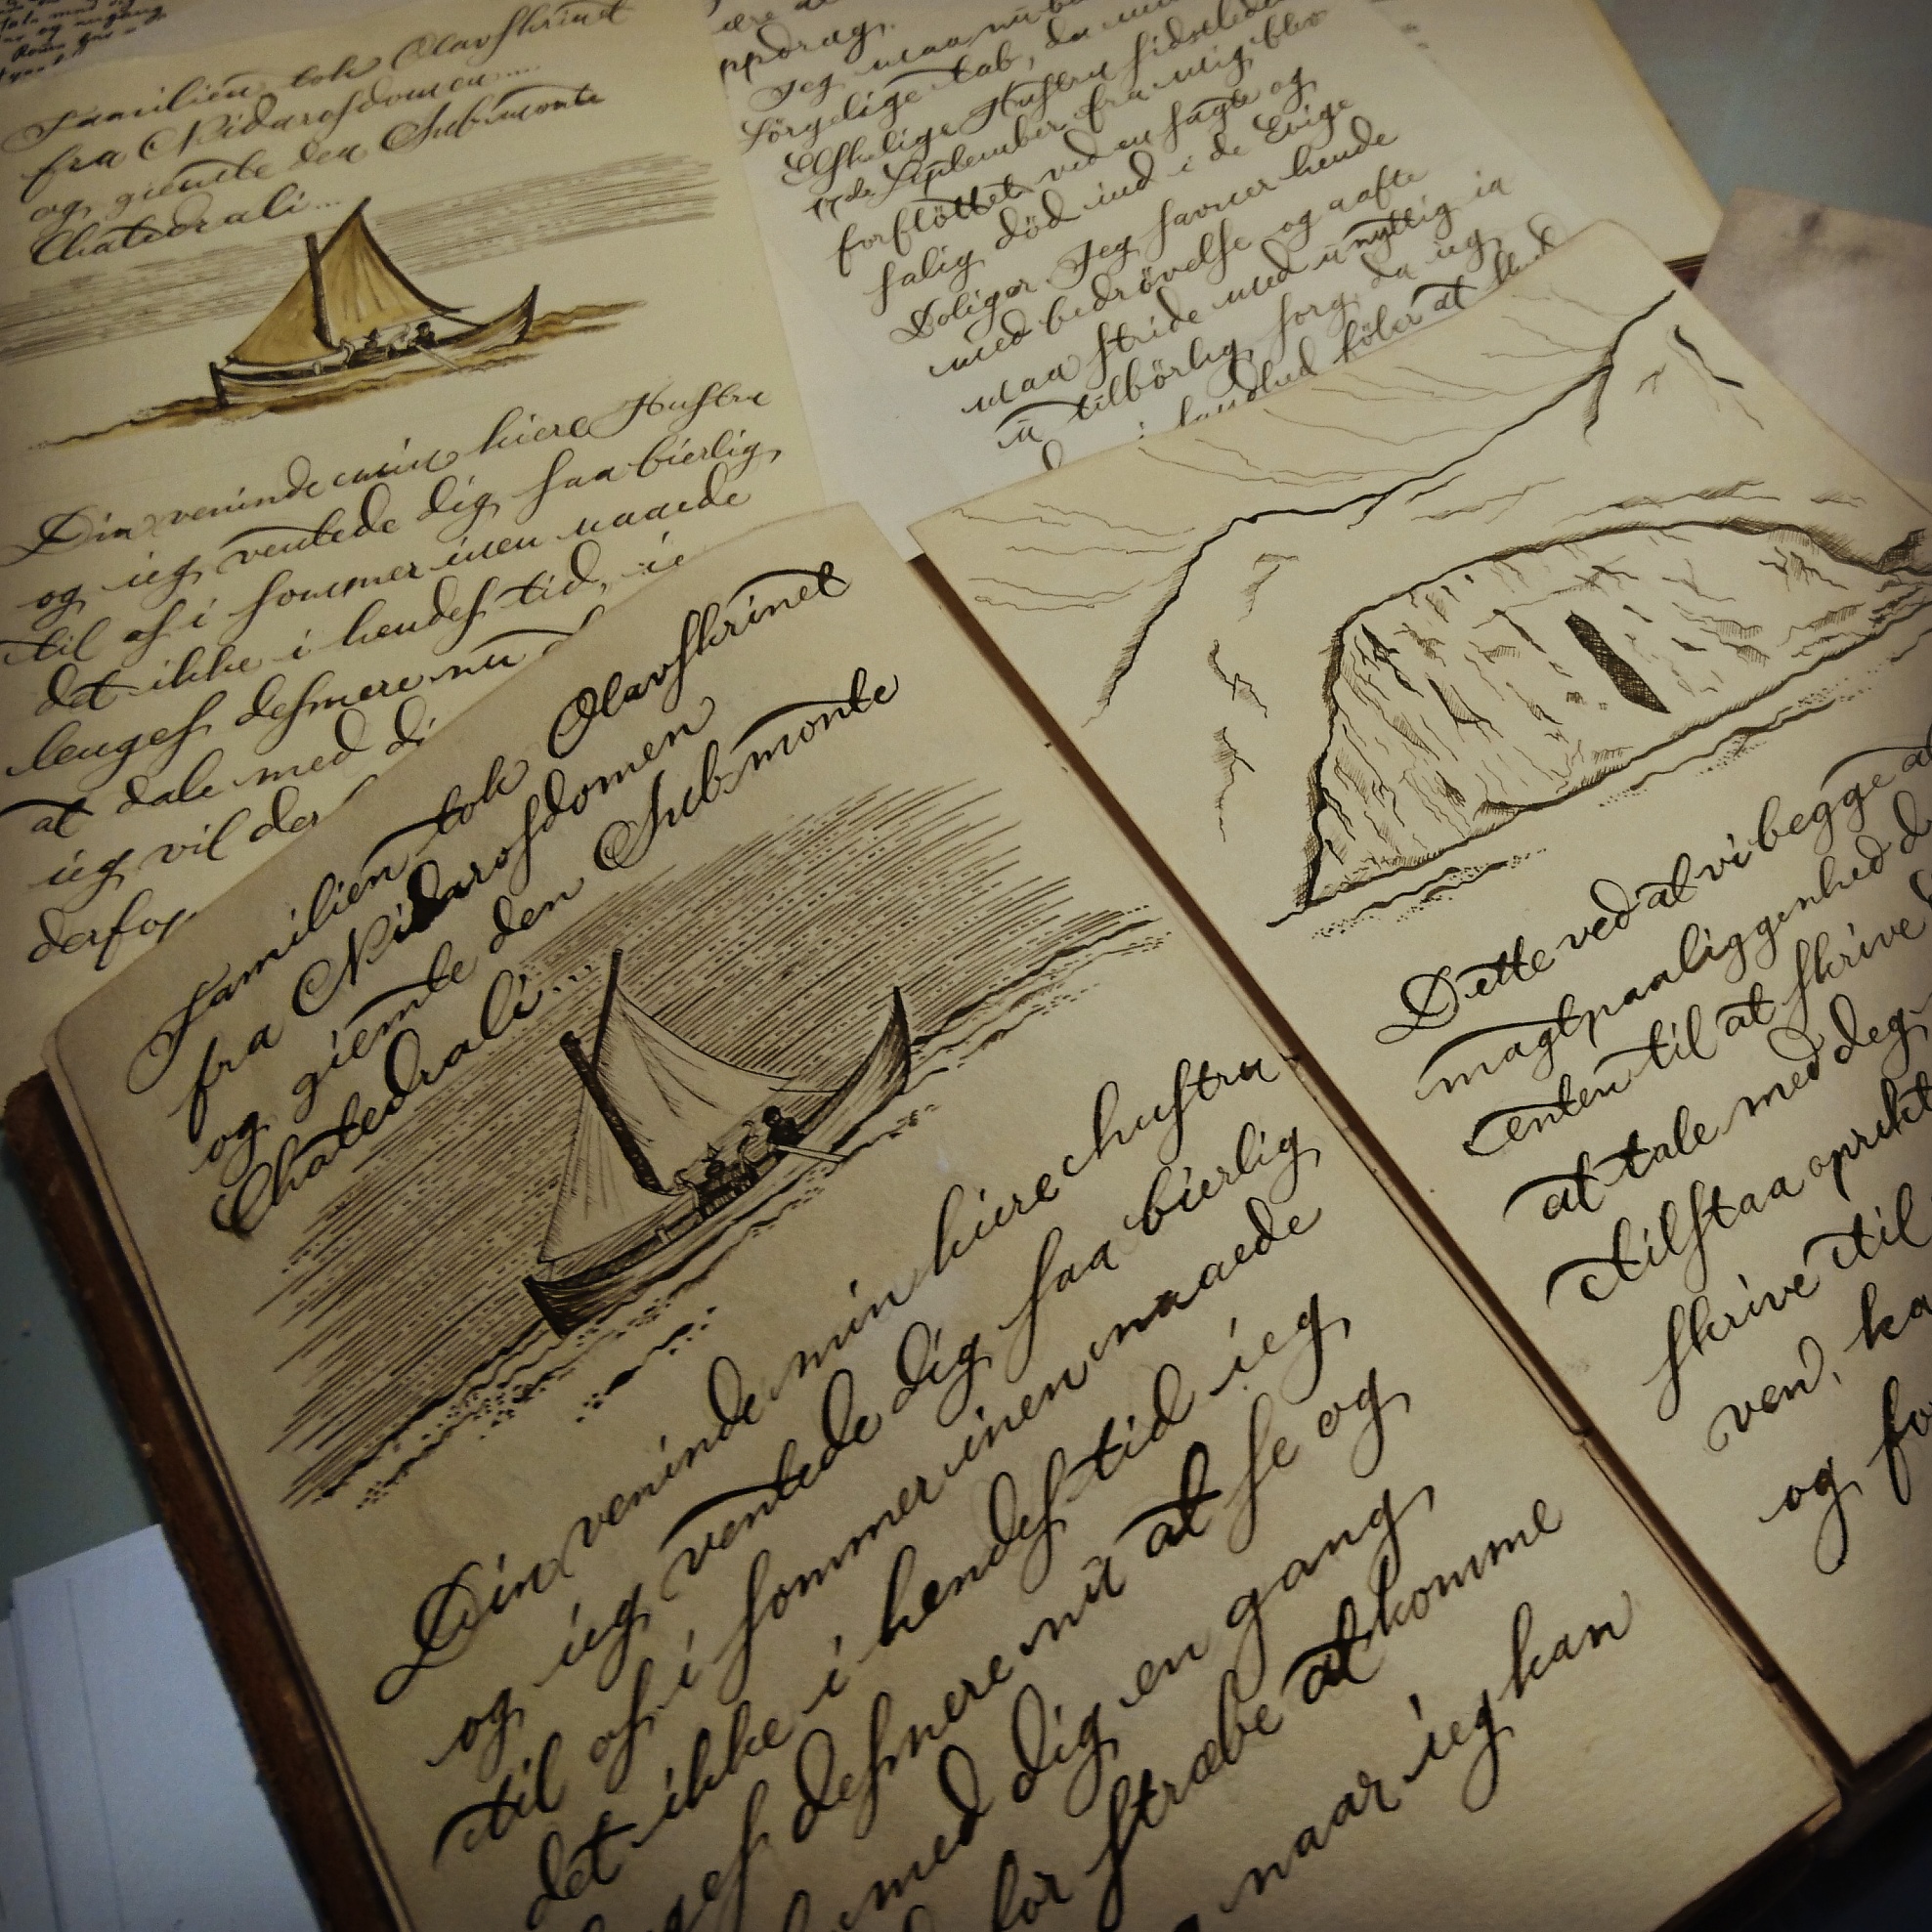 Familien tok Olavskrinet
fra Nidarosdomen.....
og giemte den Sub monte
Chatedrali...
Din veninde min kiere Hustru
og ieg ventede dig saa bierlig
til os i sommer men naaede
det ikke i hendes tid, ie
lenges desmere nu
at dale med di
ieg vil der
derfor
ppdrag.
Jeg maa nu
sörgelige tab, da min
Elskelige Hustru sidstleden
17de September fra mig blev
forflöttet ved en sagte og
salig död ind i de Evige
Boliger. Jeg savner hende
med bedrövelse og aafte
maa stride med unyttig ia
u tilbörlig sorg, da ieg
föler at
Familien tok Olavskrinet
fra Nidarosdomen
og giemte den Sub monte
Chatedrali...
Din veninde min kiere hustru
og ieg ventede dig saa bierlig
til os i sommer men naaede
det ikke i hendes tid ieg
lenges desmere nu at se og
med dig en gang,
for stræbe at komme
naar ieg kan
Dette ved at vi begge at
magtpaaliggenhed d
enten til at skrive
at tale med deg.
tilstaa oprikt
skrive til
ven, ka
og fo